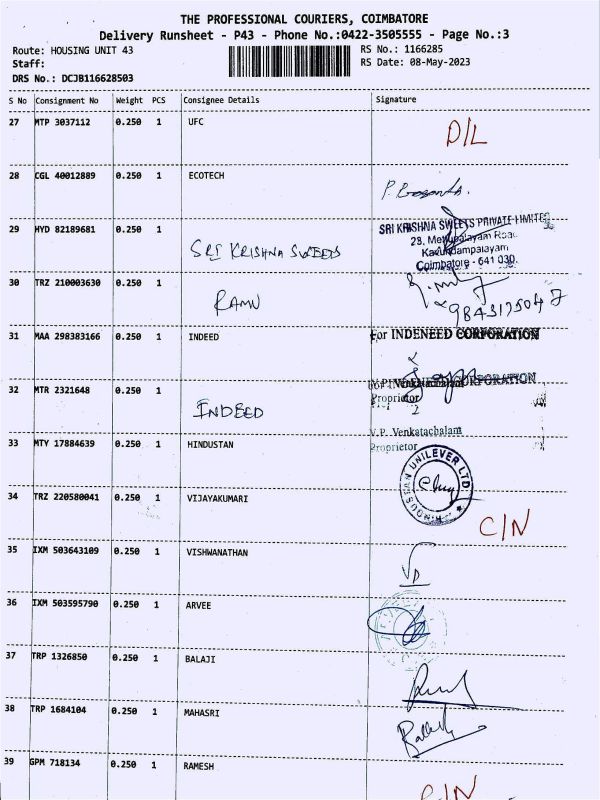 THE PROFESSIONAL COURIERS, COIMBATORE
Delivery Runsheet - P43 - Phone No.:0422-3505555 - Page No.:3
Route: HOUSING UNIT 43 RS No.: 1166285
Staff: RS Date: 08-May-2023
DRS No.: DCJB116628503
S No Consignment No Weight PCS Consignee Details Signature
27 MTP 3037112 0.250 1 UFC D/L
28 CGL 40012889 0.250 1 ECOTECH
29 HYD 82189681 0.250 1 SRI KRISHNA SWEEDS
SRI KRISHNA SWEETS PRIVATE LIMITED
28, Mettupalayam Road
Kavundampalayam
Coimbatore - 641 030.
30 TRZ 210003630 0.250 1 RAMU
31 MAA 298383166 0.250 1 INDEED
For INDENEED CORPORATION
32 MTR 2321648 0.250 1 INDEED
CORPORATION
V.P. Venkatachalam
Proprietor
V.P. Venkatachalam
Proprietor
33 MTY 17884639 0.250 1 HINDUSTAN
UNILEVER LTD
34 TRZ 220580041 0.250 1 VIJAYAKUMARI C/N
35 IXM 503643109 0.250 1 VISHWANATHAN
36 IXM 503595790 0.250 1 ARVEE
37 TRP 1326850 0.250 1 BALAJI
38 TRP 1684104 0.250 1 MAHASRI
39 GPM 718134 0.250 1 RAMESH